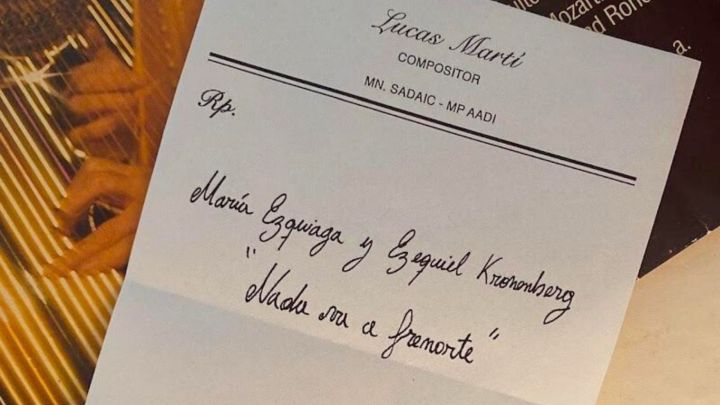 Lucas Martí
COMPOSITOR
MN. SADAIC - MP AADI
Rp.
María Ezquiaga y Ezequiel Kronenberg
"Nada va a frenarte"
Mozart
a.